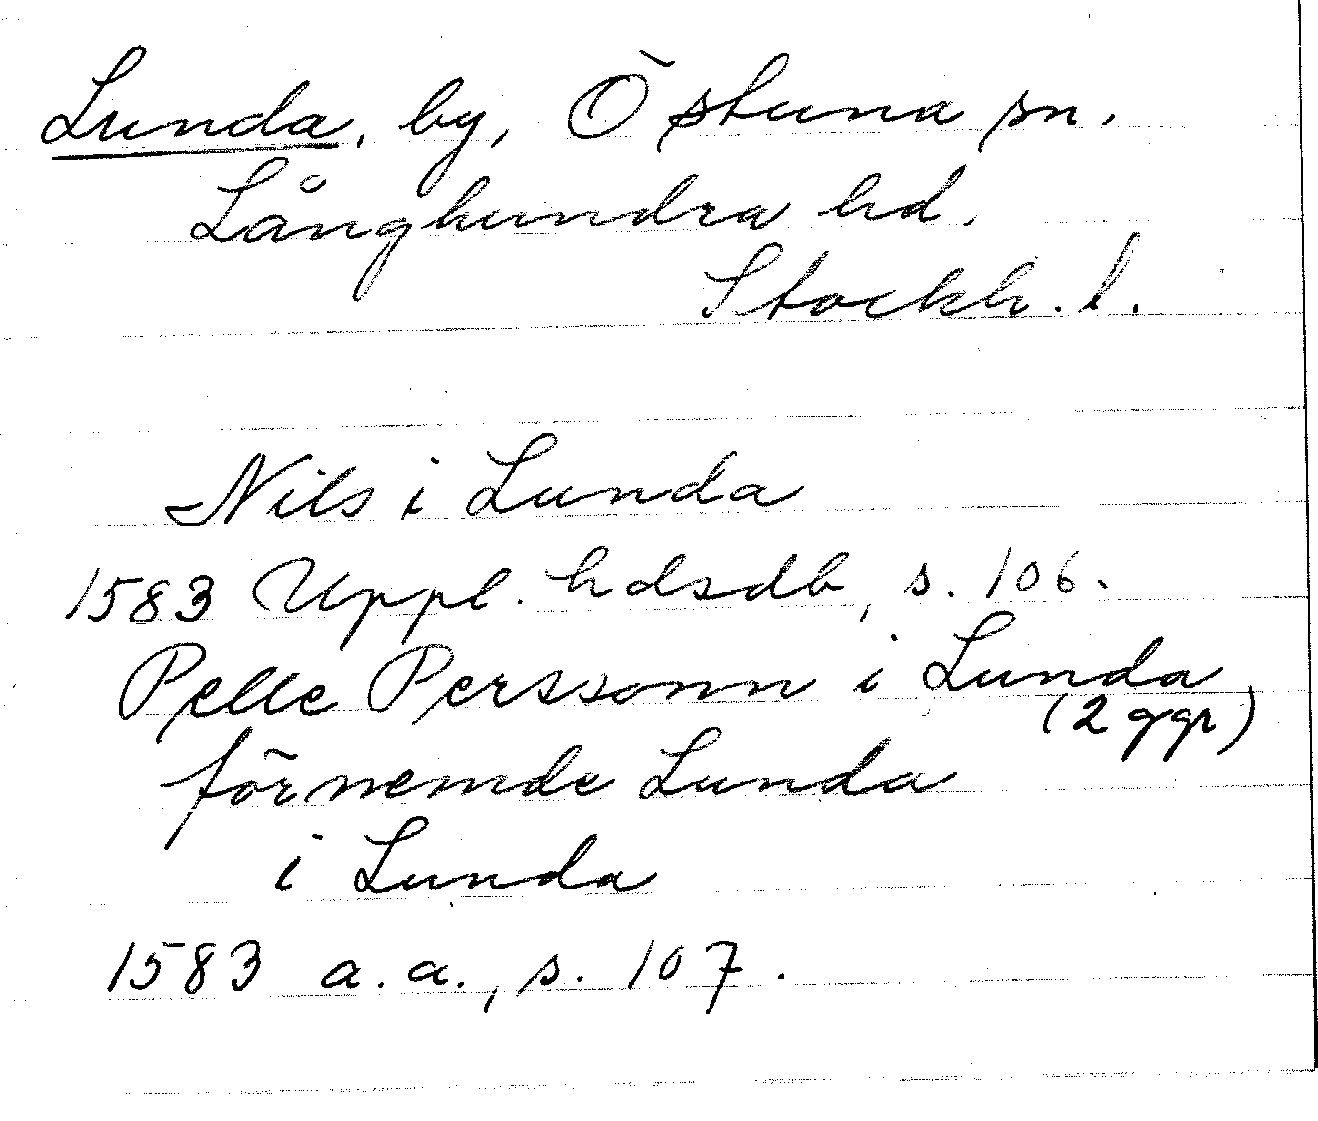 Lunda, by, Östuna sn.
Långhundra hd.
Stockh. l.
Nils i Lunda
1583 Uppl. hdsdb, s. 106.
Pelle Perssonn i Lunda
(2 ggr)
förnemde Lunda
i Lunda
1583 a.a., s. 107.